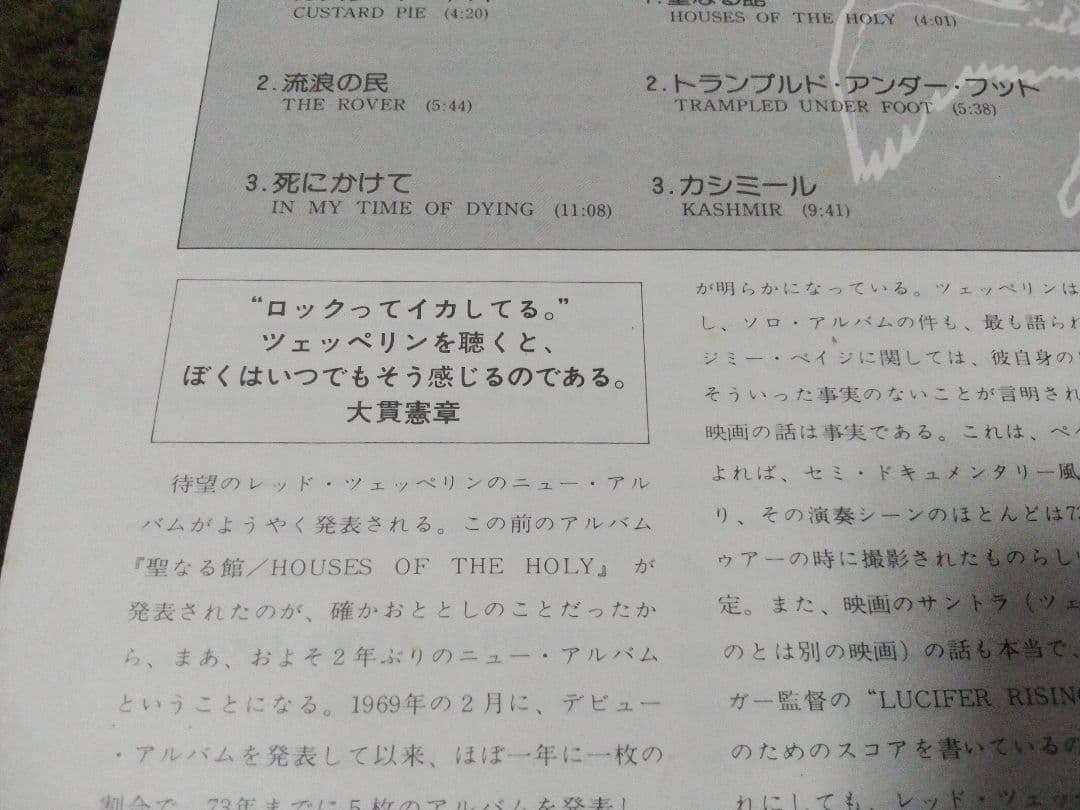 CUSTARD PIE (4:20)
2.流浪の民
THE ROVER (5:44)
3.死にかけて
IN MY TIME OF DYING (11:08)
1.聖なる館
HOUSES OF THE HOLY (4:01)
2.トランプルド・アンダー・フット
TRAMPLED UNDER FOOT (5:38)
3.カシミール
KASHMIR (9:41)
“ロックってイカしてる。”
ツェッペリンを聴くと、
ぼくはいつでもそう感じるのである。
大貫憲章
待望のレッド・ツェッペリンのニュー・アル
バムがようやく発表される。この前のアルバム
『聖なる館／HOUSES OF THE HOLY』が
発表されたのが、確かおととしのことだったか
ら、まあ、およそ2年ぶりのニュー・アルバム
ということになる。1969年の2月に、デビュー
・アルバムを発表して以来、ほぼ一年に一枚の
割合で、73年までに5枚のアルバムを発表し
が明らかになっている。ツェッペリンは
し、ソロ・アルバムの件も、最も語られ
ジミー・ペイジに関しては、彼自身の
そういった事実のないことが言明され
映画の話は事実である。これは、ペ
よれば、セミ・ドキュメンタリー風
り、その演奏シーンのほとんどは7
ゥアーの時に撮影されたものらしい
定。また、映画のサントラ（ツェ
のとは別の映画）の話も本当で、
ガー監督の“LUCIFER RISING
のためのスコアを書いているの
れにしても、レッド・